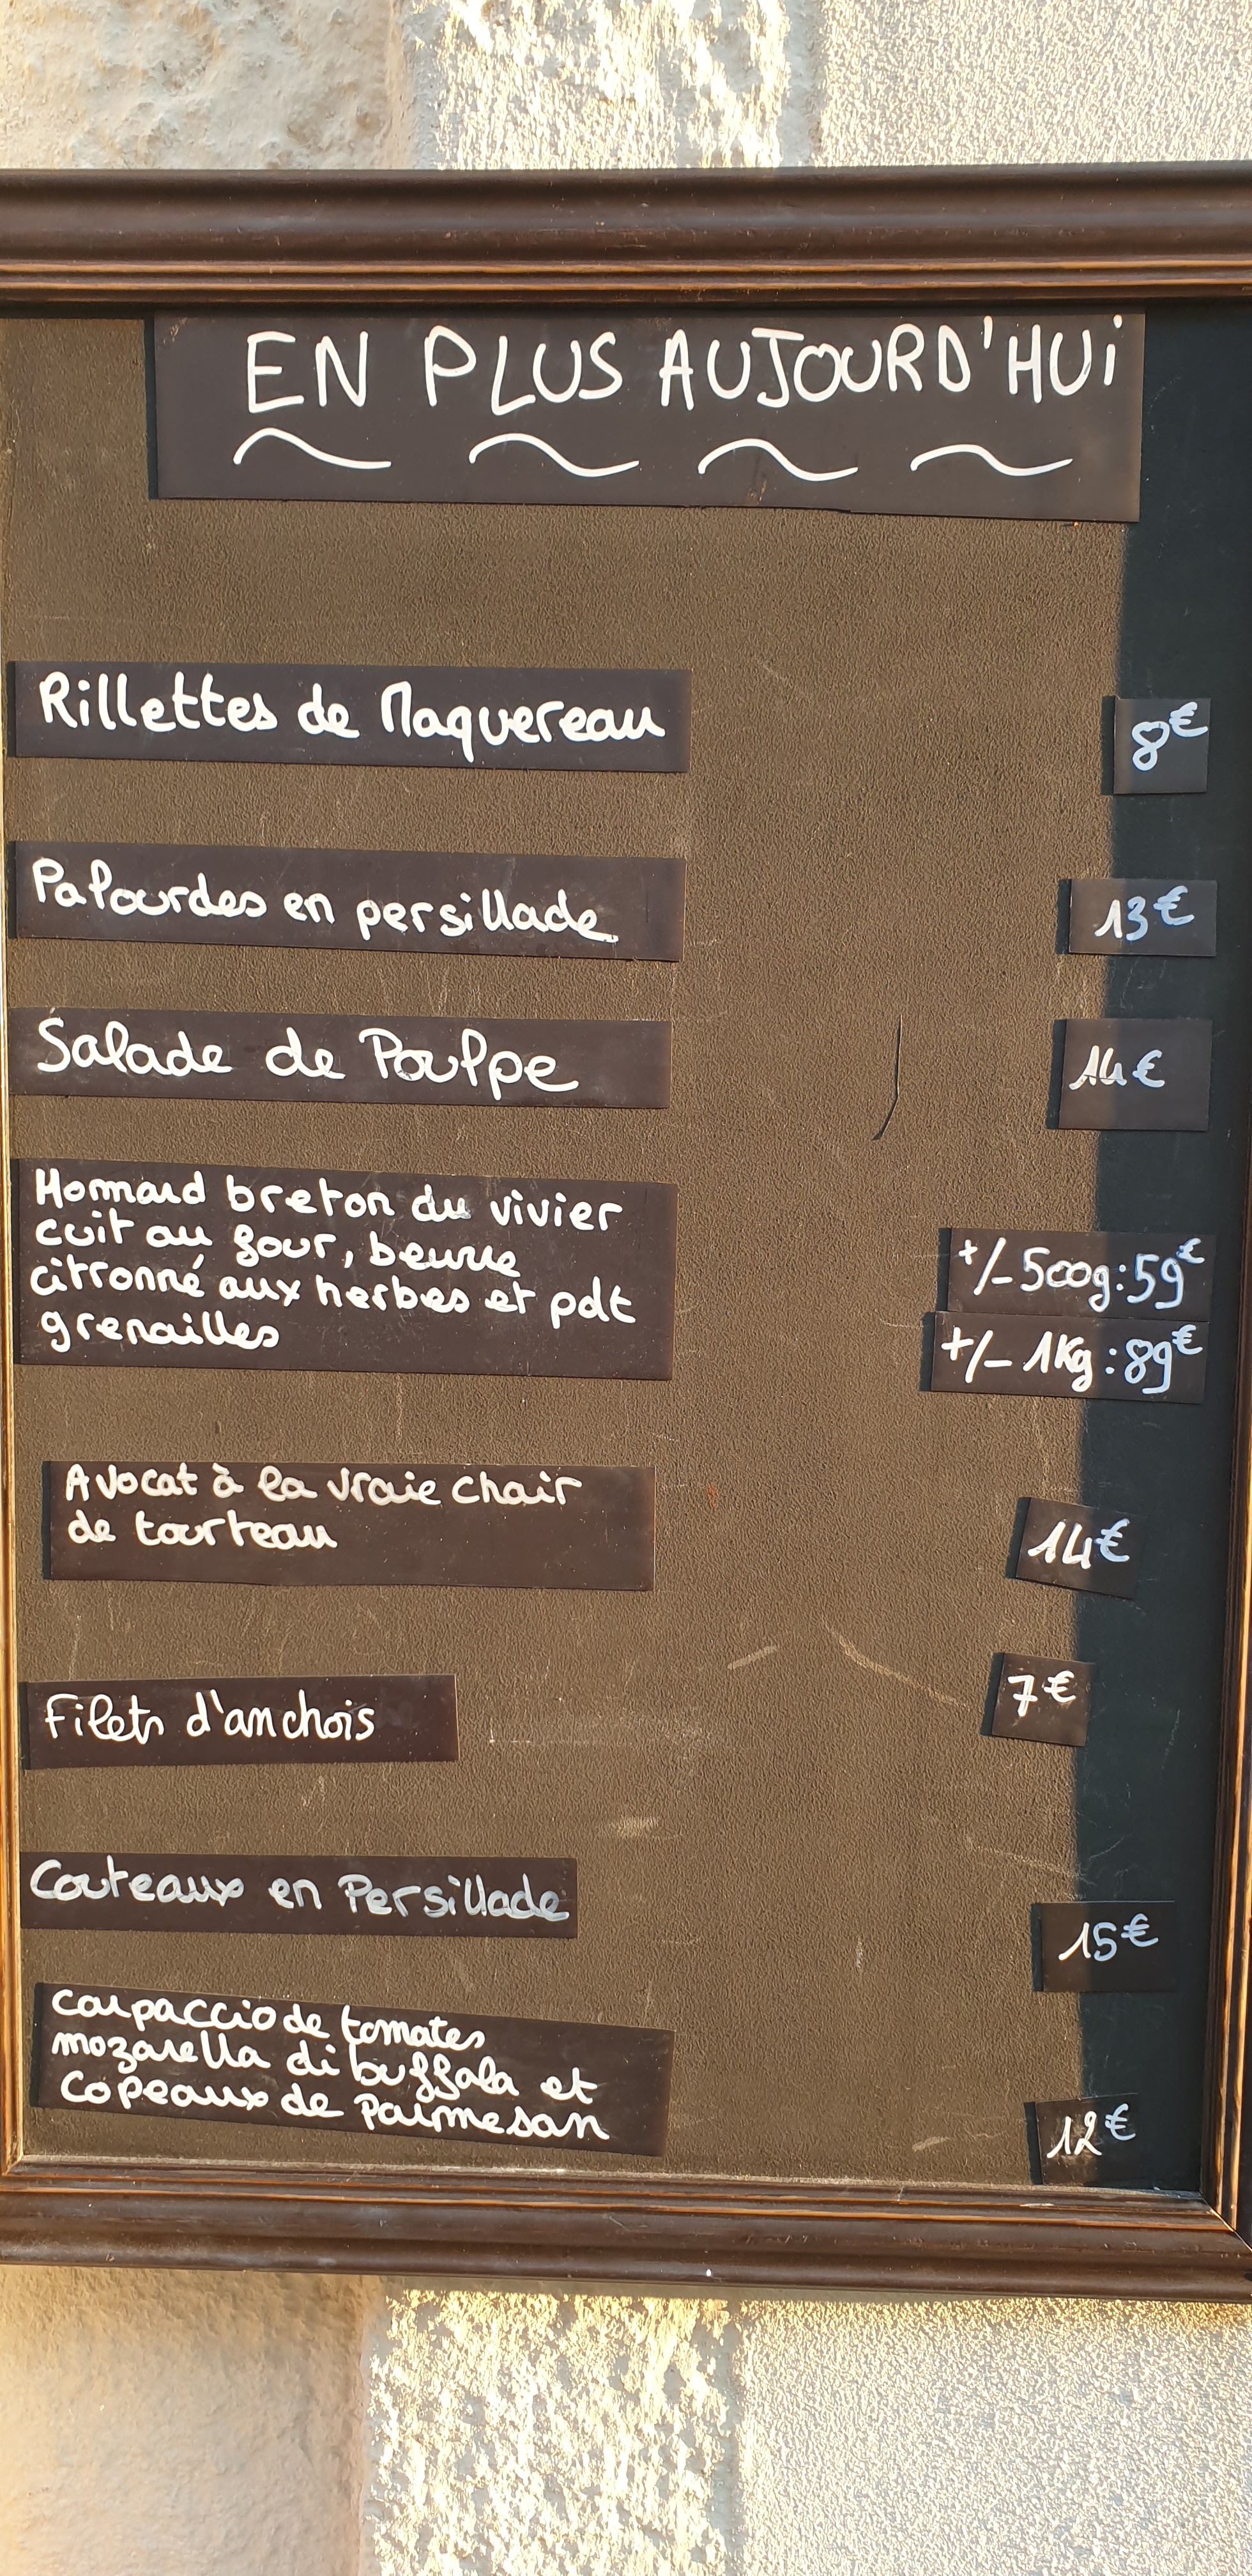 EN PLUS AUJOURD'HUi
Rillettes de Maquereau
8€
Palourdes en persillade
13€
Salade de Poulpe
14€
Homard breton du vivier
cuit au four, beurre
citronné aux herbes et pdt
grenailles
+/- 500g: 59€
+/- 1Kg: 89€
Avocat à la vraie chair
de tourteau
14€
Filets d'anchois
7€
Couteaux en Persillade
15€
Carpaccio de tomates
mozarella di buffala et
copeaux de parmesan
12€